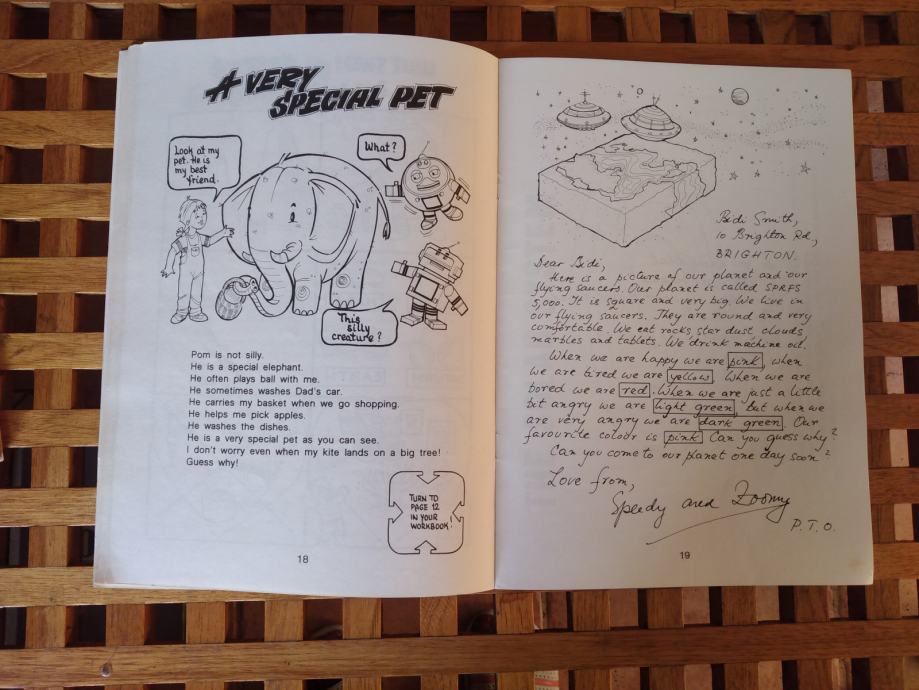 A VERY
SPECIAL PET
Look at my
pet. He is
my best
friend.
What?
This
silly
creature?
Pom is not silly.
He is a special elephant.
He often plays ball with me.
He sometimes washes Dad's car.
He carries my basket when we go shopping.
He helps me pick apples.
He washes the dishes.
He is a very special pet as you can see.
I don't worry even when my kite lands on a big tree!
Guess why!
TURN TO
PAGE 12
IN YOUR
WORKBOOK!
18
Bidi Smith,
10 Brighton Rd,
BRIGHTON.
Dear Bidi,
Here is a picture of our planet and our
flying saucers. Our planet is called SPRFS
5,000. It is square and very big. We live in
our flying saucers. They are round and very
comfortable. We eat rocks, star dust, clouds,
marbles and tablets. We drink machine oil.
When we are happy we are pink, when
we are tired we are yellow. When we are
bored we are red. When we are just a little
bit angry we are light green. But when we
are very angry we are dark green. Our
favourite colour is pink. Can you guess why?
Can you come to our planet one day soon?
Love from,
Speedy and Zoomy
P.T.O.
19